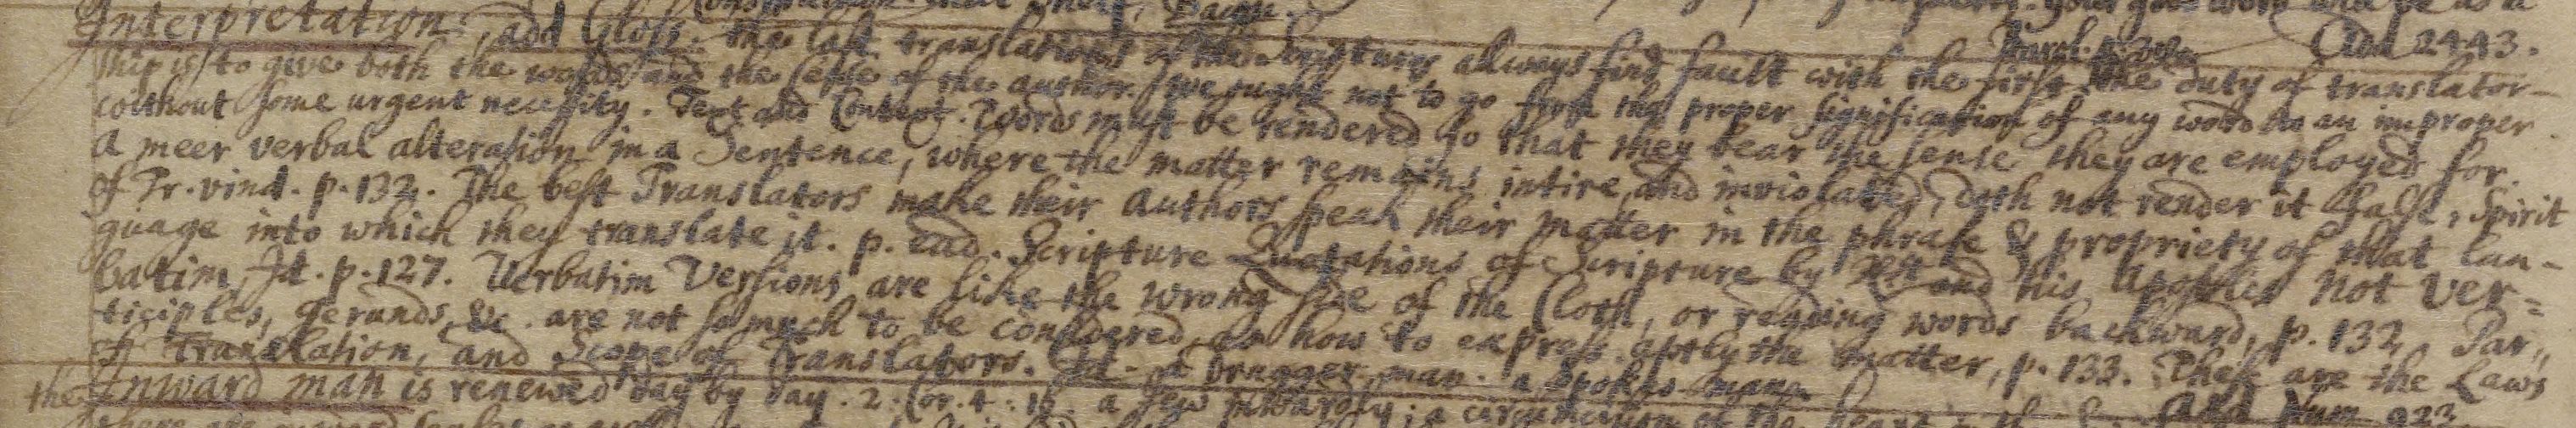 Interpretation: add Gloss. the last translations of the Scriptures always find fault with the first. the duty of translator-
ship is, to give both the words and the sense of the author. we ought not to go from the proper signification of any word to an improper
without some urgent necessity. Text and Context. Words must be rendered so that they bear the sense they are employed for.
A meer verbal alteration in a Sentence, where the matter remains intire, and inviolated, doth not render it false, Spirit
of Pr. vind. p. 132. The best Translators make their Authors speak their matter in the phrase & propriety of that lan-
guage into which they translate it. p. ead. Scripture Quotations of Scripture by Xst and his Apostles not ver=
batim, Id. p. 127. Verbatim Versions are like the wrong side of the Cloth, or reading words backward, p. 132. Par-
ticiples, gerunds, &c. are not so much to be considered, as how to express aptly the matter, p. 133. These are the Laws
of Translation, and Scope of Translators. Id. a Drugger man. a Spokes-man.
Add 2443.
the Inward man is renewed day by day. 2. Cor. 4. 16. a Jew inwardly: a circumcision of the heart
Add Num 922